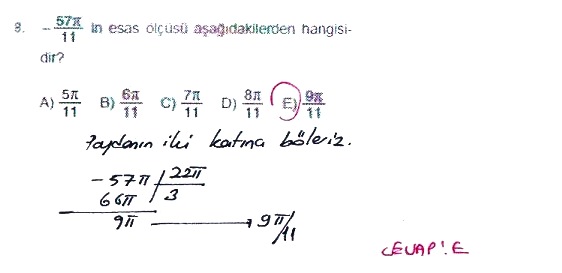 8. -57π/11 in esas ölçüsü aşağıdakilerden hangisi-
dir?
A) 5π/11 B) 6π/11 C) 7π/11 D) 8π/11 E) 9π/11
Paydanın iki katına böleriz.
-57π | 22π
66π | 3
9π → 9π/11
CEVAP: E